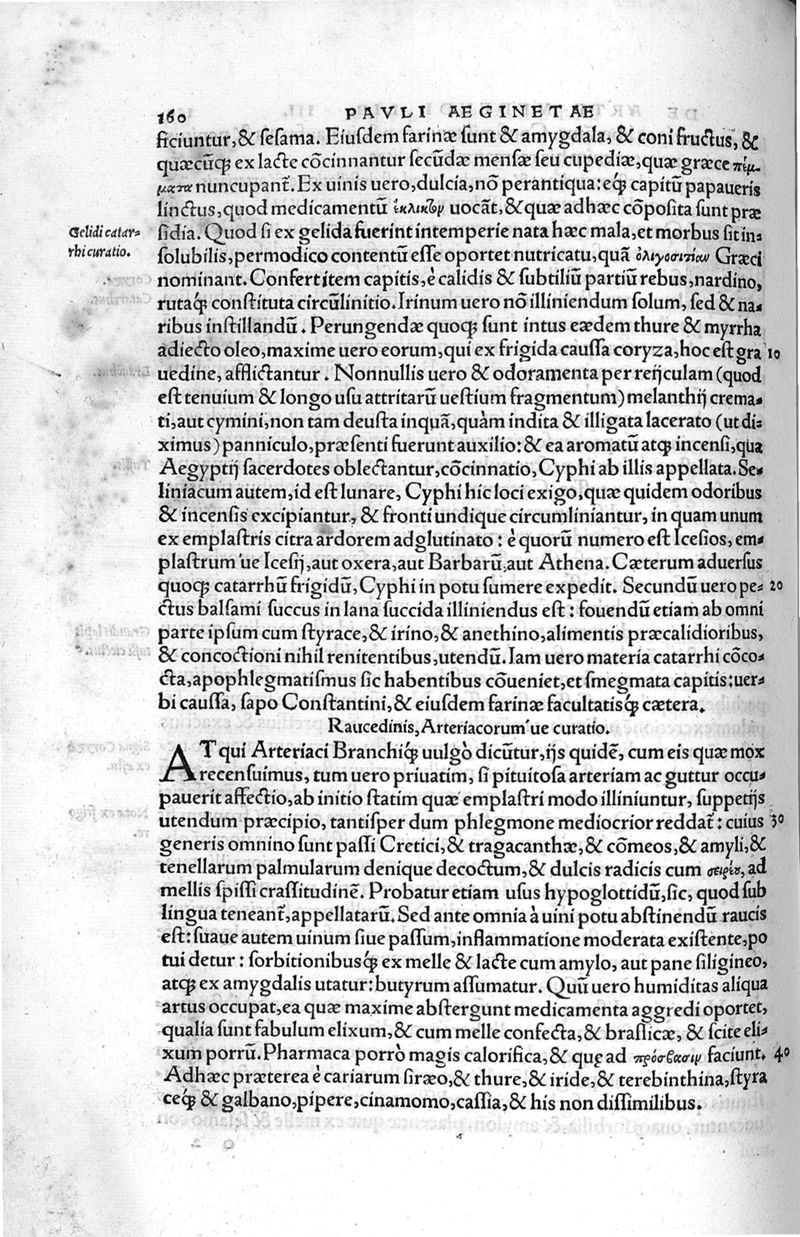 160 PAVLI AEGINETAE
ficiuntur,& sesama. Eiusdem farinæ sunt & amygdala, & coni fructus, &
quæcūq; ex lacte cōcinnantur secūdæ mensæ seu cupediæ,quæ græce πέμ-
ματα nuncupant̃. Ex uinis uero,dulcia,nō perantiqua:eq; capitū papaueris
linctus,quod medicamentū ἐκλικτὸν uocāt,& quæ adhæc cōposita sunt præ
Gelidi catar-
rhi curatio.
sidia. Quod si ex gelida fuerint intemperie nata hæc mala,et morbus sit in-
solubilis,permodico contentū esse oportet nutricatu,quā ὀλιγοσιτίαν Græci
nominant. Confert item capitis,è calidis & subtiliū partiū rebus,nardino,
rutaq; constituta circūlinitio. Irinum uero nō illiniendum solum, sed & na-
ribus instillandū. Perungendæ quoq; sunt intus eædem thure & myrrha
adiecto oleo,maxime uero eorum,qui ex frigida caussa coryza,hoc est gra 10
uedine, afflictantur. Nonnullis uero & odoramenta per reijculam (quod
est tenuium & longo usu attritarū uestium fragmentum) melanthij crema-
ti,aut cymini,non tam deusta inquā,quàm indita & illigata lacerato (ut di-
ximus) panniculo,præsenti fuerunt auxilio:& ea aromatū atq; incensi,qua
Aegyptij sacerdotes oblectantur,cōcinnatio,Cyphi ab illis appellata. Se-
liniacum autem,id est lunare, Cyphi hic loci exigo,quæ quidem odoribus
& incensis excipiantur, & fronti undique circumliniantur, in quam unum
ex emplastris citra ardorem adglutinato: è quorū numero est Icesios, em-
plastrum'ue Icesij,aut oxera,aut Barbarū,aut Athena. Cæterum aduersus
quoq; catarrhū frigidū,Cyphi in potu sumere expedit. Secundū uero pe- 20
ctus balsami succus in lana succida illiniendus est: fouendū etiam ab omni
parte ipsum cum styrace,& irino,& anethino,alimentis præcalidioribus,
& concoctioni nihil renitentibus,utendū. Iam uero materia catarrhi cōco-
cta,apophlegmatismus sic habentibus cōueniet,et smegmata capitis:uer-
bi caussa, sapo Constantini,& eiusdem farinæ facultatisq; cætera.
Raucedinis, Arteriacorum'ue curatio.
AT qui Arteriaci Branchiq; uulgò dicūtur,ijs quidē, cum eis quæ mox
recensuimus, tum uero priuatim, si pituitosa arteriam ac guttur occu-
pauerit affectio,ab initio statim quæ emplastri modo illiniuntur, suppetijs
utendum præcipio, tantisper dum phlegmone mediocrior reddat̃: cuius 30
generis omnino sunt passi Cretici,& tragacanthæ,& cōmeos,& amyli,&
tenellarum palmularum denique decoctum,& dulcis radicis cum σειρέῳ, ad
mellis spissi crassitudinē. Probatur etiam usus hypoglottidū,sic, quod sub
lingua teneant̃,appellatarū. Sed ante omnia à uini potu abstinendū raucis
est: suaue autem uinum siue passum,inflammatione moderata existente,po
tui detur: sorbitionibusq; ex melle & lacte cum amylo, aut pane siligineo,
atq; ex amygdalis utatur: butyrum assumatur. Quū uero humiditas aliqua
artus occupat,ea quæ maxime abstergunt medicamenta aggredi oportet,
qualia sunt fabulum elixum,& cum melle confecta,& brassicæ, & scite eli-
xum porrū. Pharmaca porrò magis calorifica,& quę ad πρόσβασιν faciunt. 40
Adhæc præterea è cariarum siræo,& thure,& iride,& terebinthina,styra
ceq; & galbano,pipere,cinamomo,cassia,& his non dissimilibus.